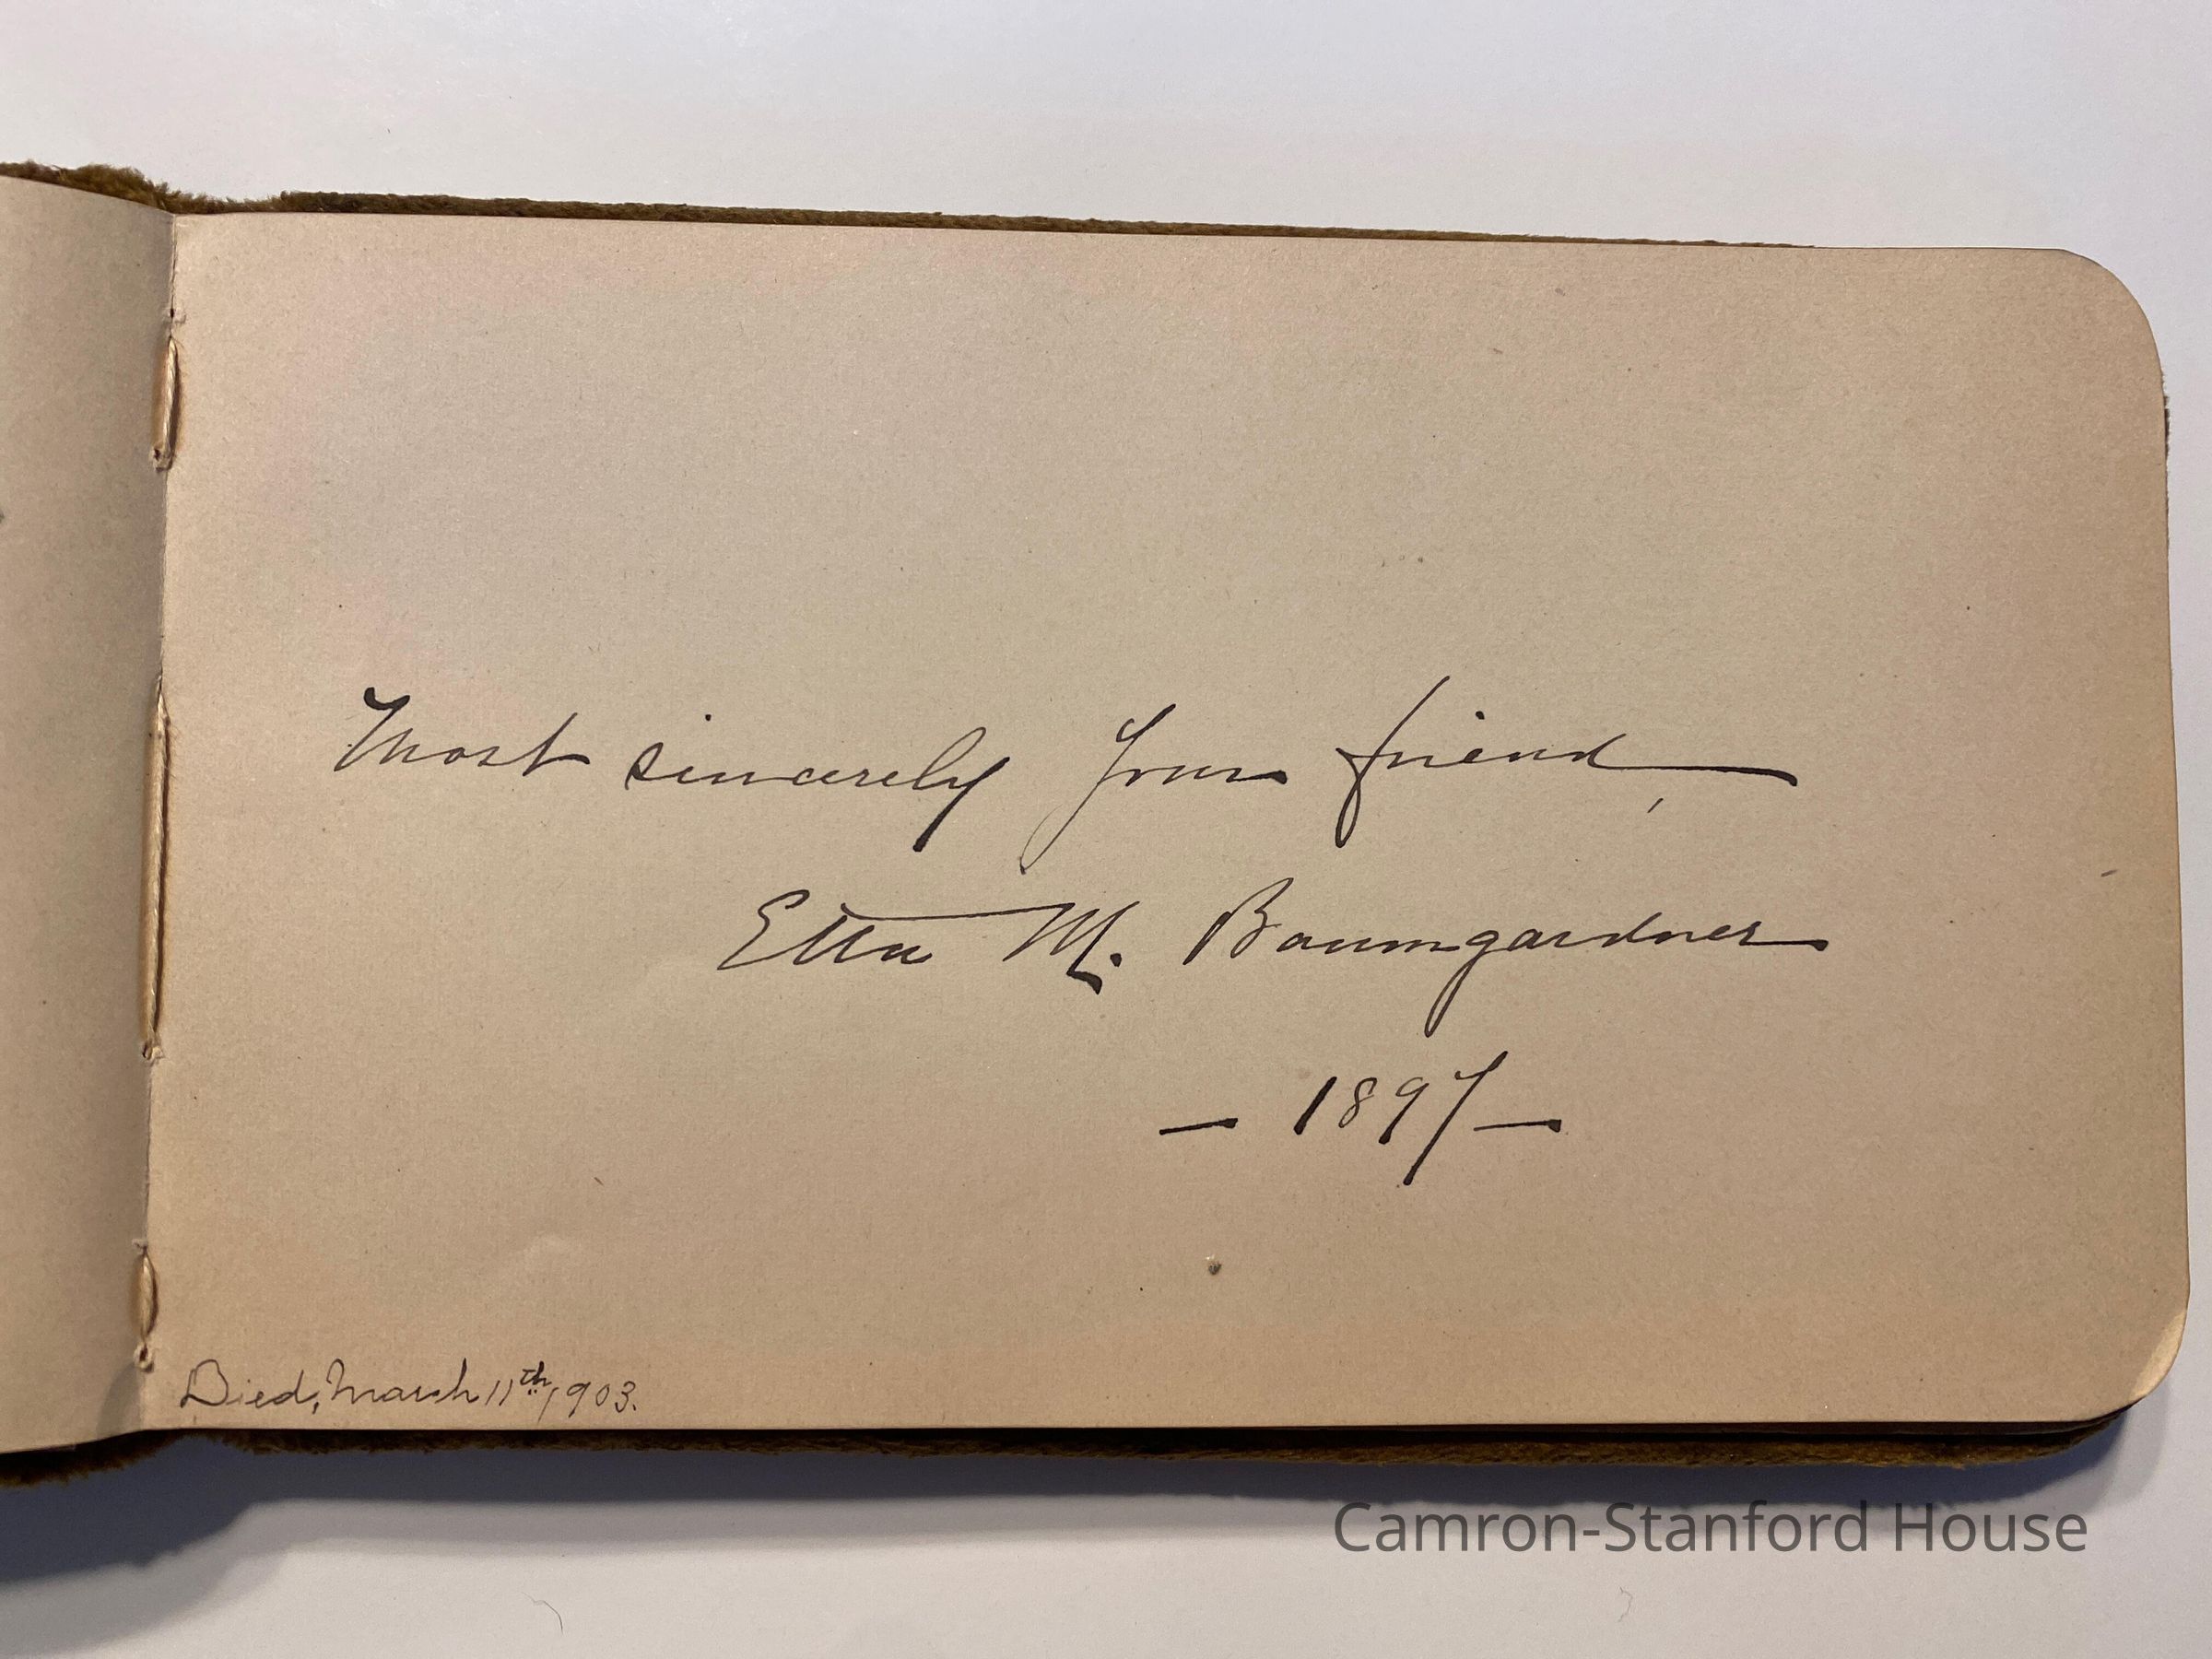 Most sincerely Your friend,
Etta M. Baumgardner
— 1897 —
Died, March 11th, 1903.
Camron-Stanford House